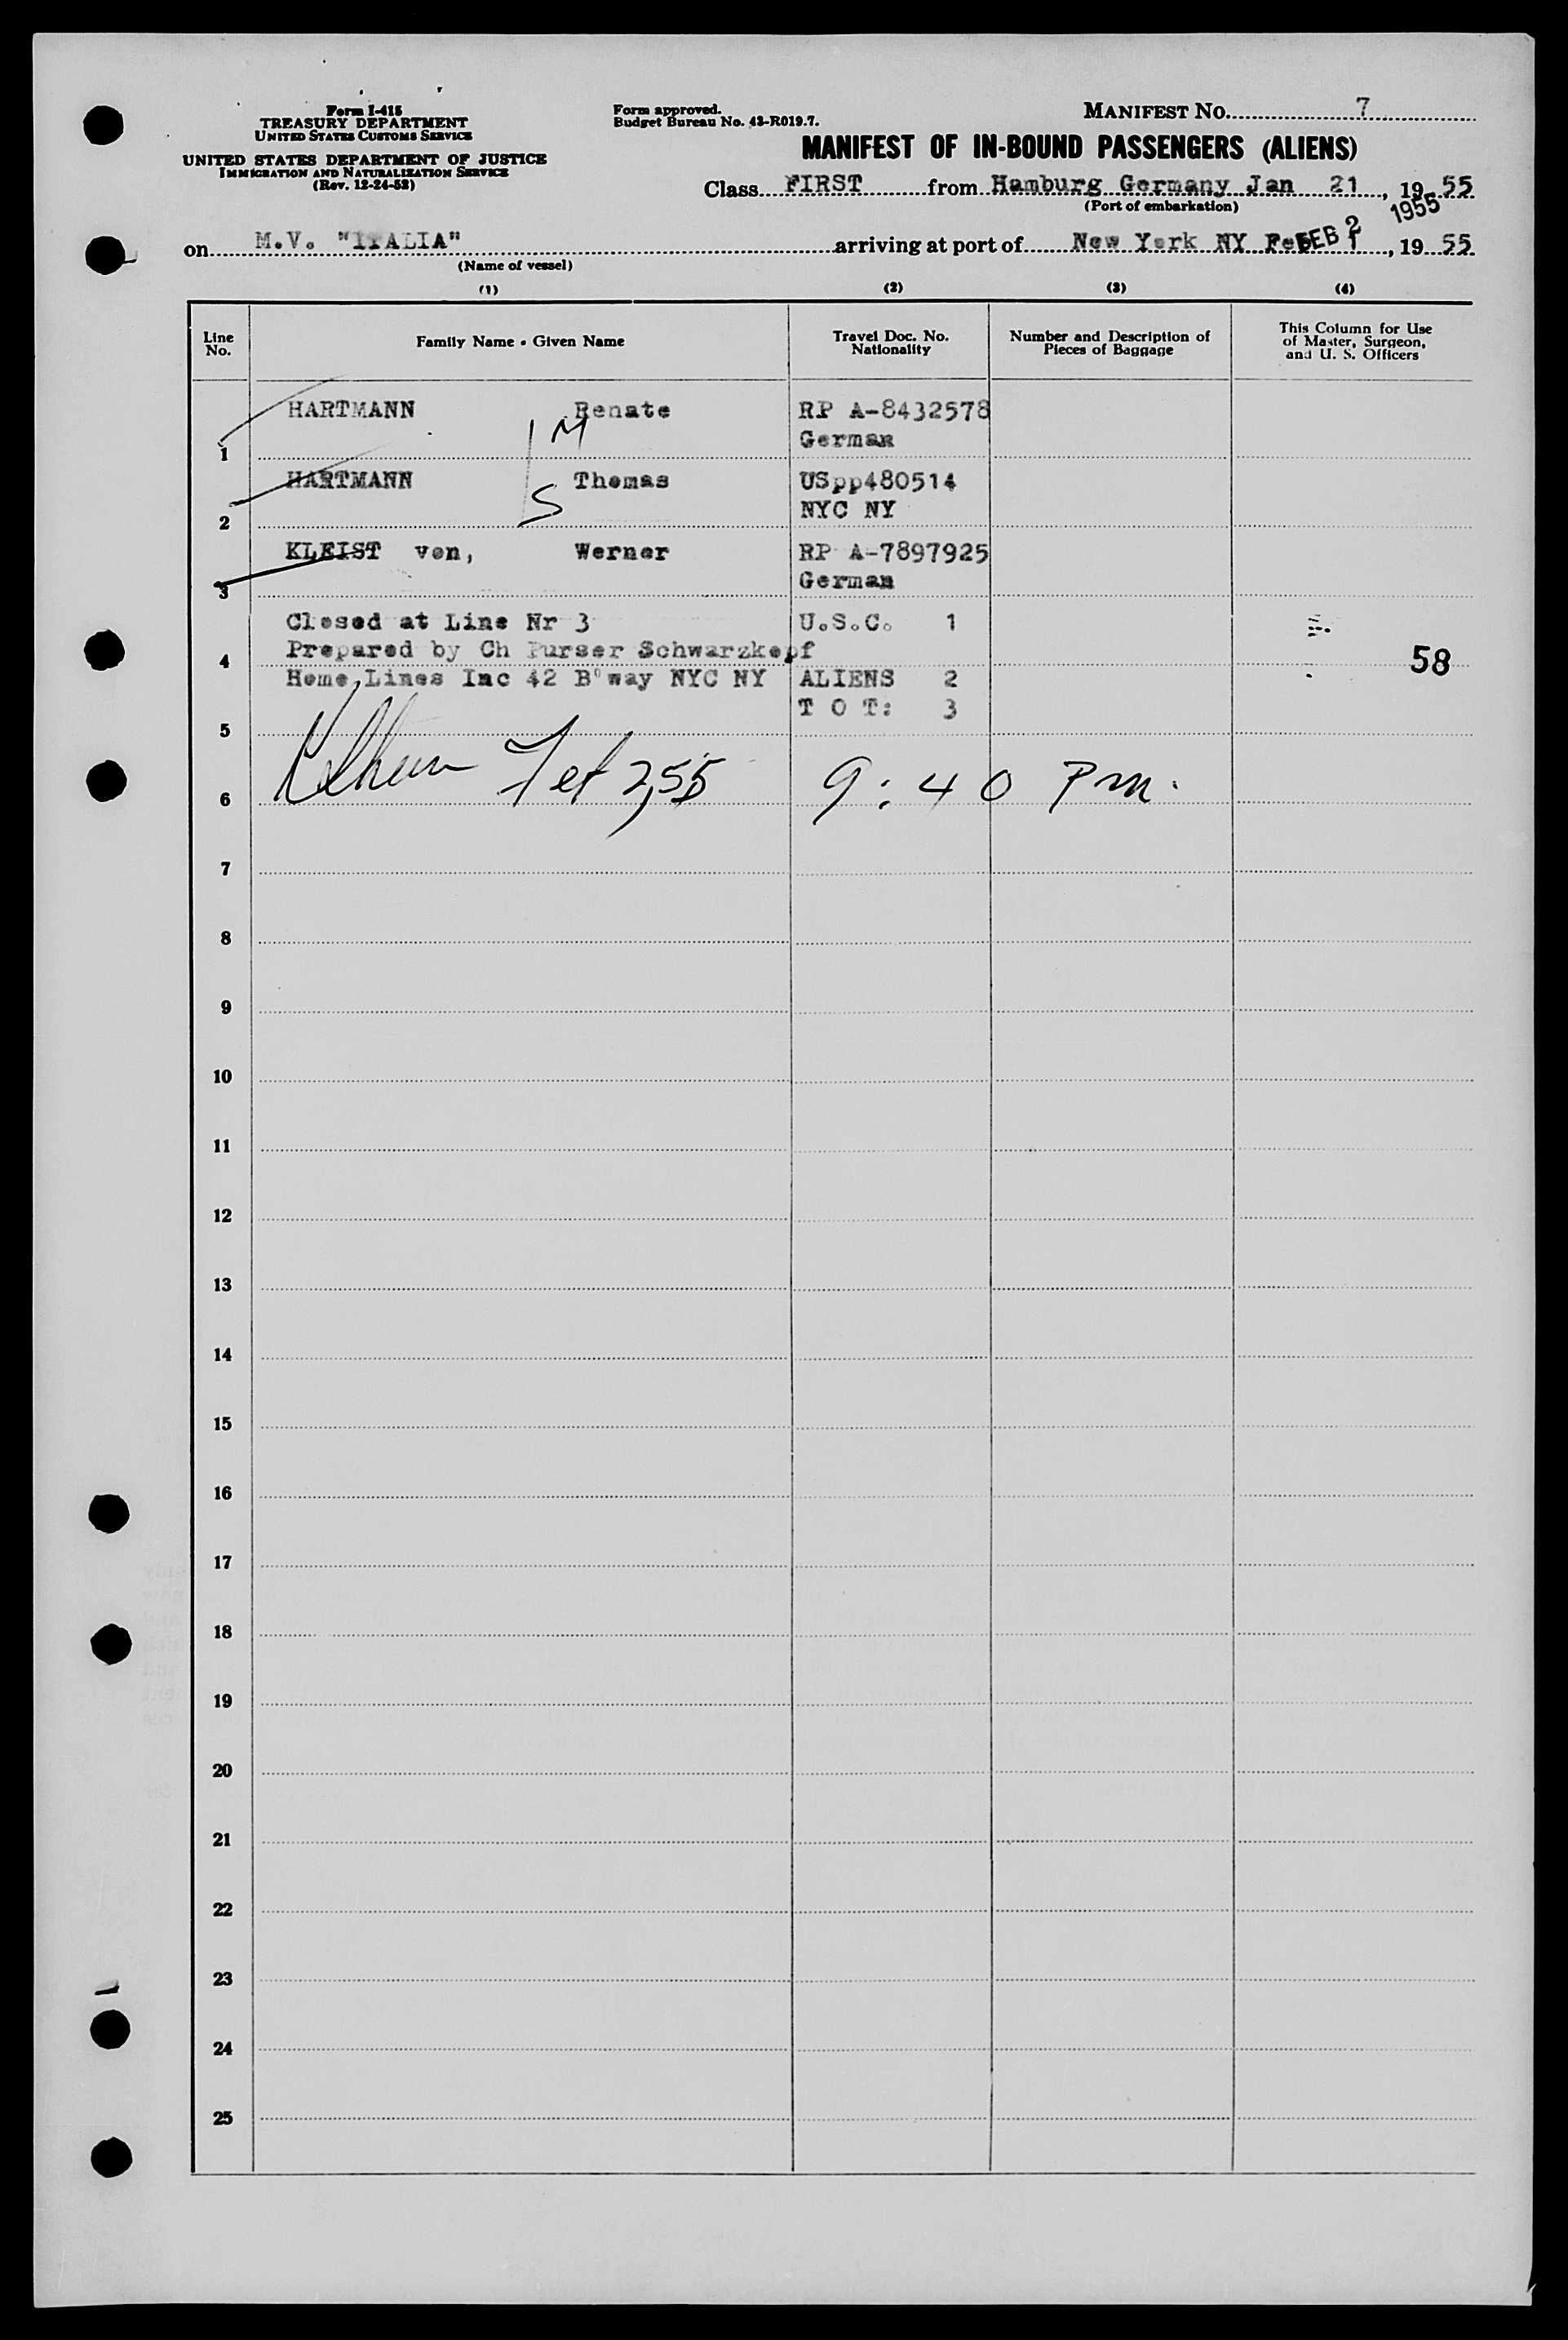 Form I-415
TREASURY DEPARTMENT
UNITED STATES CUSTOMS SERVICE
UNITED STATES DEPARTMENT OF JUSTICE
IMMIGRATION AND NATURALIZATION SERVICE
(Rev. 12-24-52)
Form approved.
Budget Bureau No. 43-R019.7.
MANIFEST NO. 7
MANIFEST OF IN-BOUND PASSENGERS (ALIENS)
Class FIRST from Hamburg Germany Jan 21, 1955
(Port of embarkation)
FEB 2 1955
on M.V. "ITALIA" arriving at port of New York NY Feb 1, 1955
(Name of vessel)
(1) (2) (3) (4)
Line No. Family Name - Given Name Travel Doc. No. Nationality Number and Description of Pieces of Baggage This Column for Use of Master, Surgeon, and U. S. Officers
HARTMANN Renate RP A-8432578
M
1 German
HARTMANN Thomas USpp480514
S
2 NYC NY
KLEIST von, Werner RP A-7897925
3 German
Closed at Line Nr 3 U.S.C. 1
Prepared by Ch Purser Schwarzkopf
4 58
Home Lines Inc 42 B'way NYC NY ALIENS 2
T O T: 3
5
6 2,55 9:40 Pm.
7
8
9
10
11
12
13
14
15
16
17
18
19
20
21
22
23
24
25